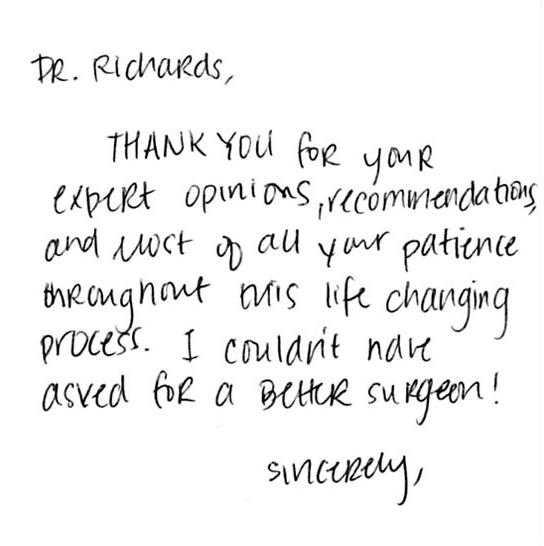 DR. Richards,
THANK YOU for your
expert opinions, recommendations,
and most of all your patience
throughout this life changing
process. I couldn't have
asked for a better surgeon!
sincerely,